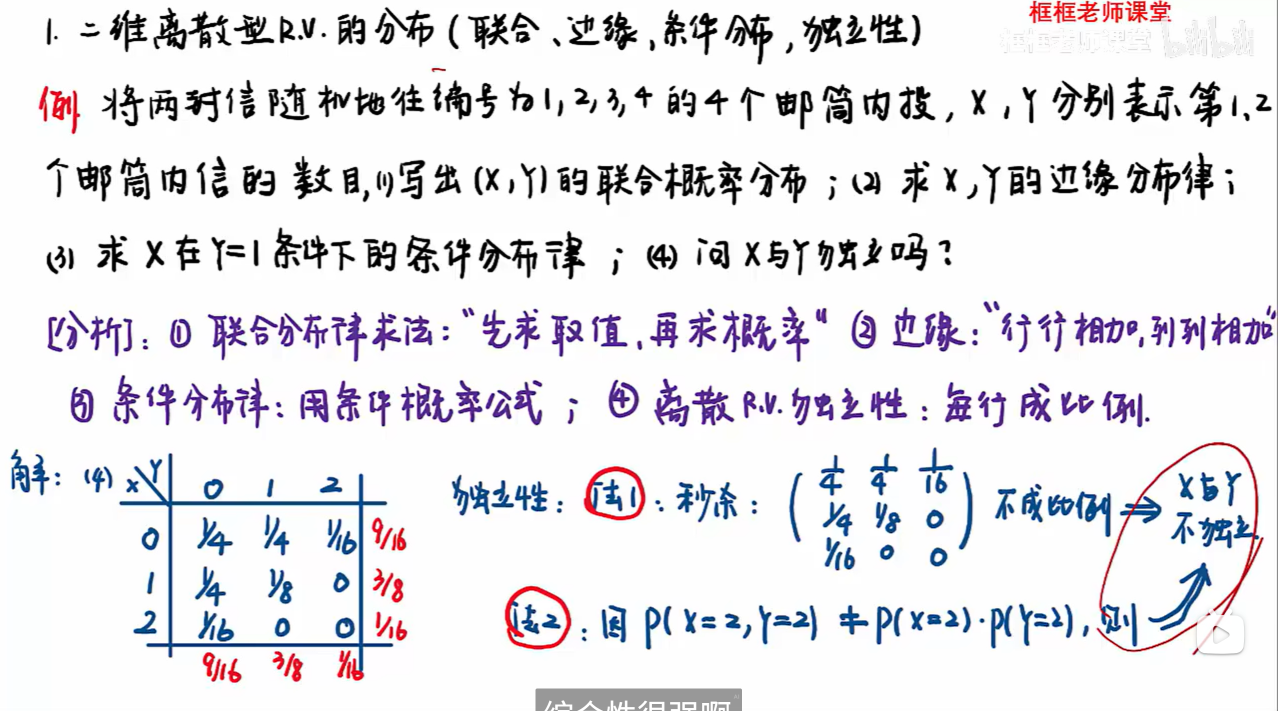 框框老师课堂
框框老师课堂 bilibili
1. 二维离散型R.V.的分布(联合、边缘,条件分布,独立性)
例 将两封信随机地往编号为1,2,3,4的4个邮筒内投,X,Y分别表示第1、2
个邮筒内信的数目,(1)写出(X,Y)的联合概率分布;(2)求X,Y的边缘分布律;
(3) 求X在Y=1条件下的条件分布律;(4)问X与Y独立吗?
[分析]:① 联合分布律求法:“先求取值,再求概率” ② 边缘:“行行相加,列列相加”
③ 条件分布律:用条件概率公式;④ 离散R.V.独立性:每行成比例.
解:(4) X\Y 0 1 2
0 1/4 1/4 1/16 9/16
1 1/4 1/8 0 3/8
2 1/16 0 0 1/16
9/16 3/8 1/16
独立性:法1:秒杀:
( 1/4 1/4 1/16
1/4 1/8 0
1/16 0 0 ) 不成比例 ⇒
X与Y
不独立.
法2:因 P(X=2,Y=2) ≠ P(X=2)·P(Y=2),则
综合性很强啊